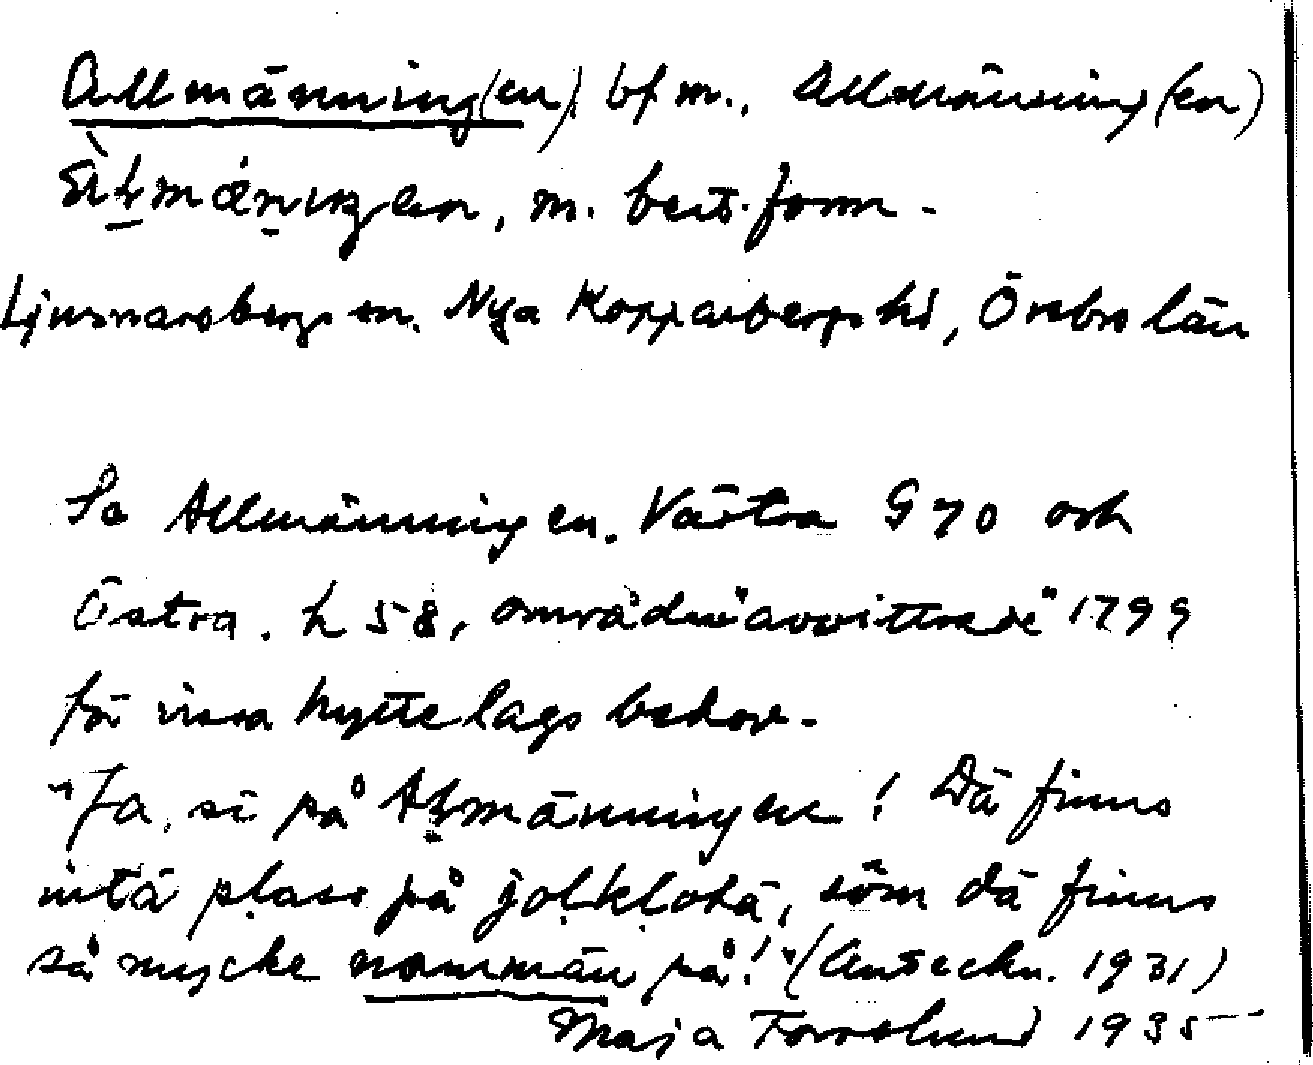 Allmänning(en) bf m., Allmänning(en)
m. best. form.
Ljusnarsbergs sn. Nya Kopparbergs hd, Örebro län
Se Allmänningen. Västra G 70 och
Östra. h 58, områden "avvittrade" 1799
för vissa hyttelags behov.
"Ja, si på Aḷmänningen! Dä finns
intä plass på joḷkḷotä, söm dä finns
så mycke nammän på!" (Anteckn. 1931)
Maja Forsslund 1935